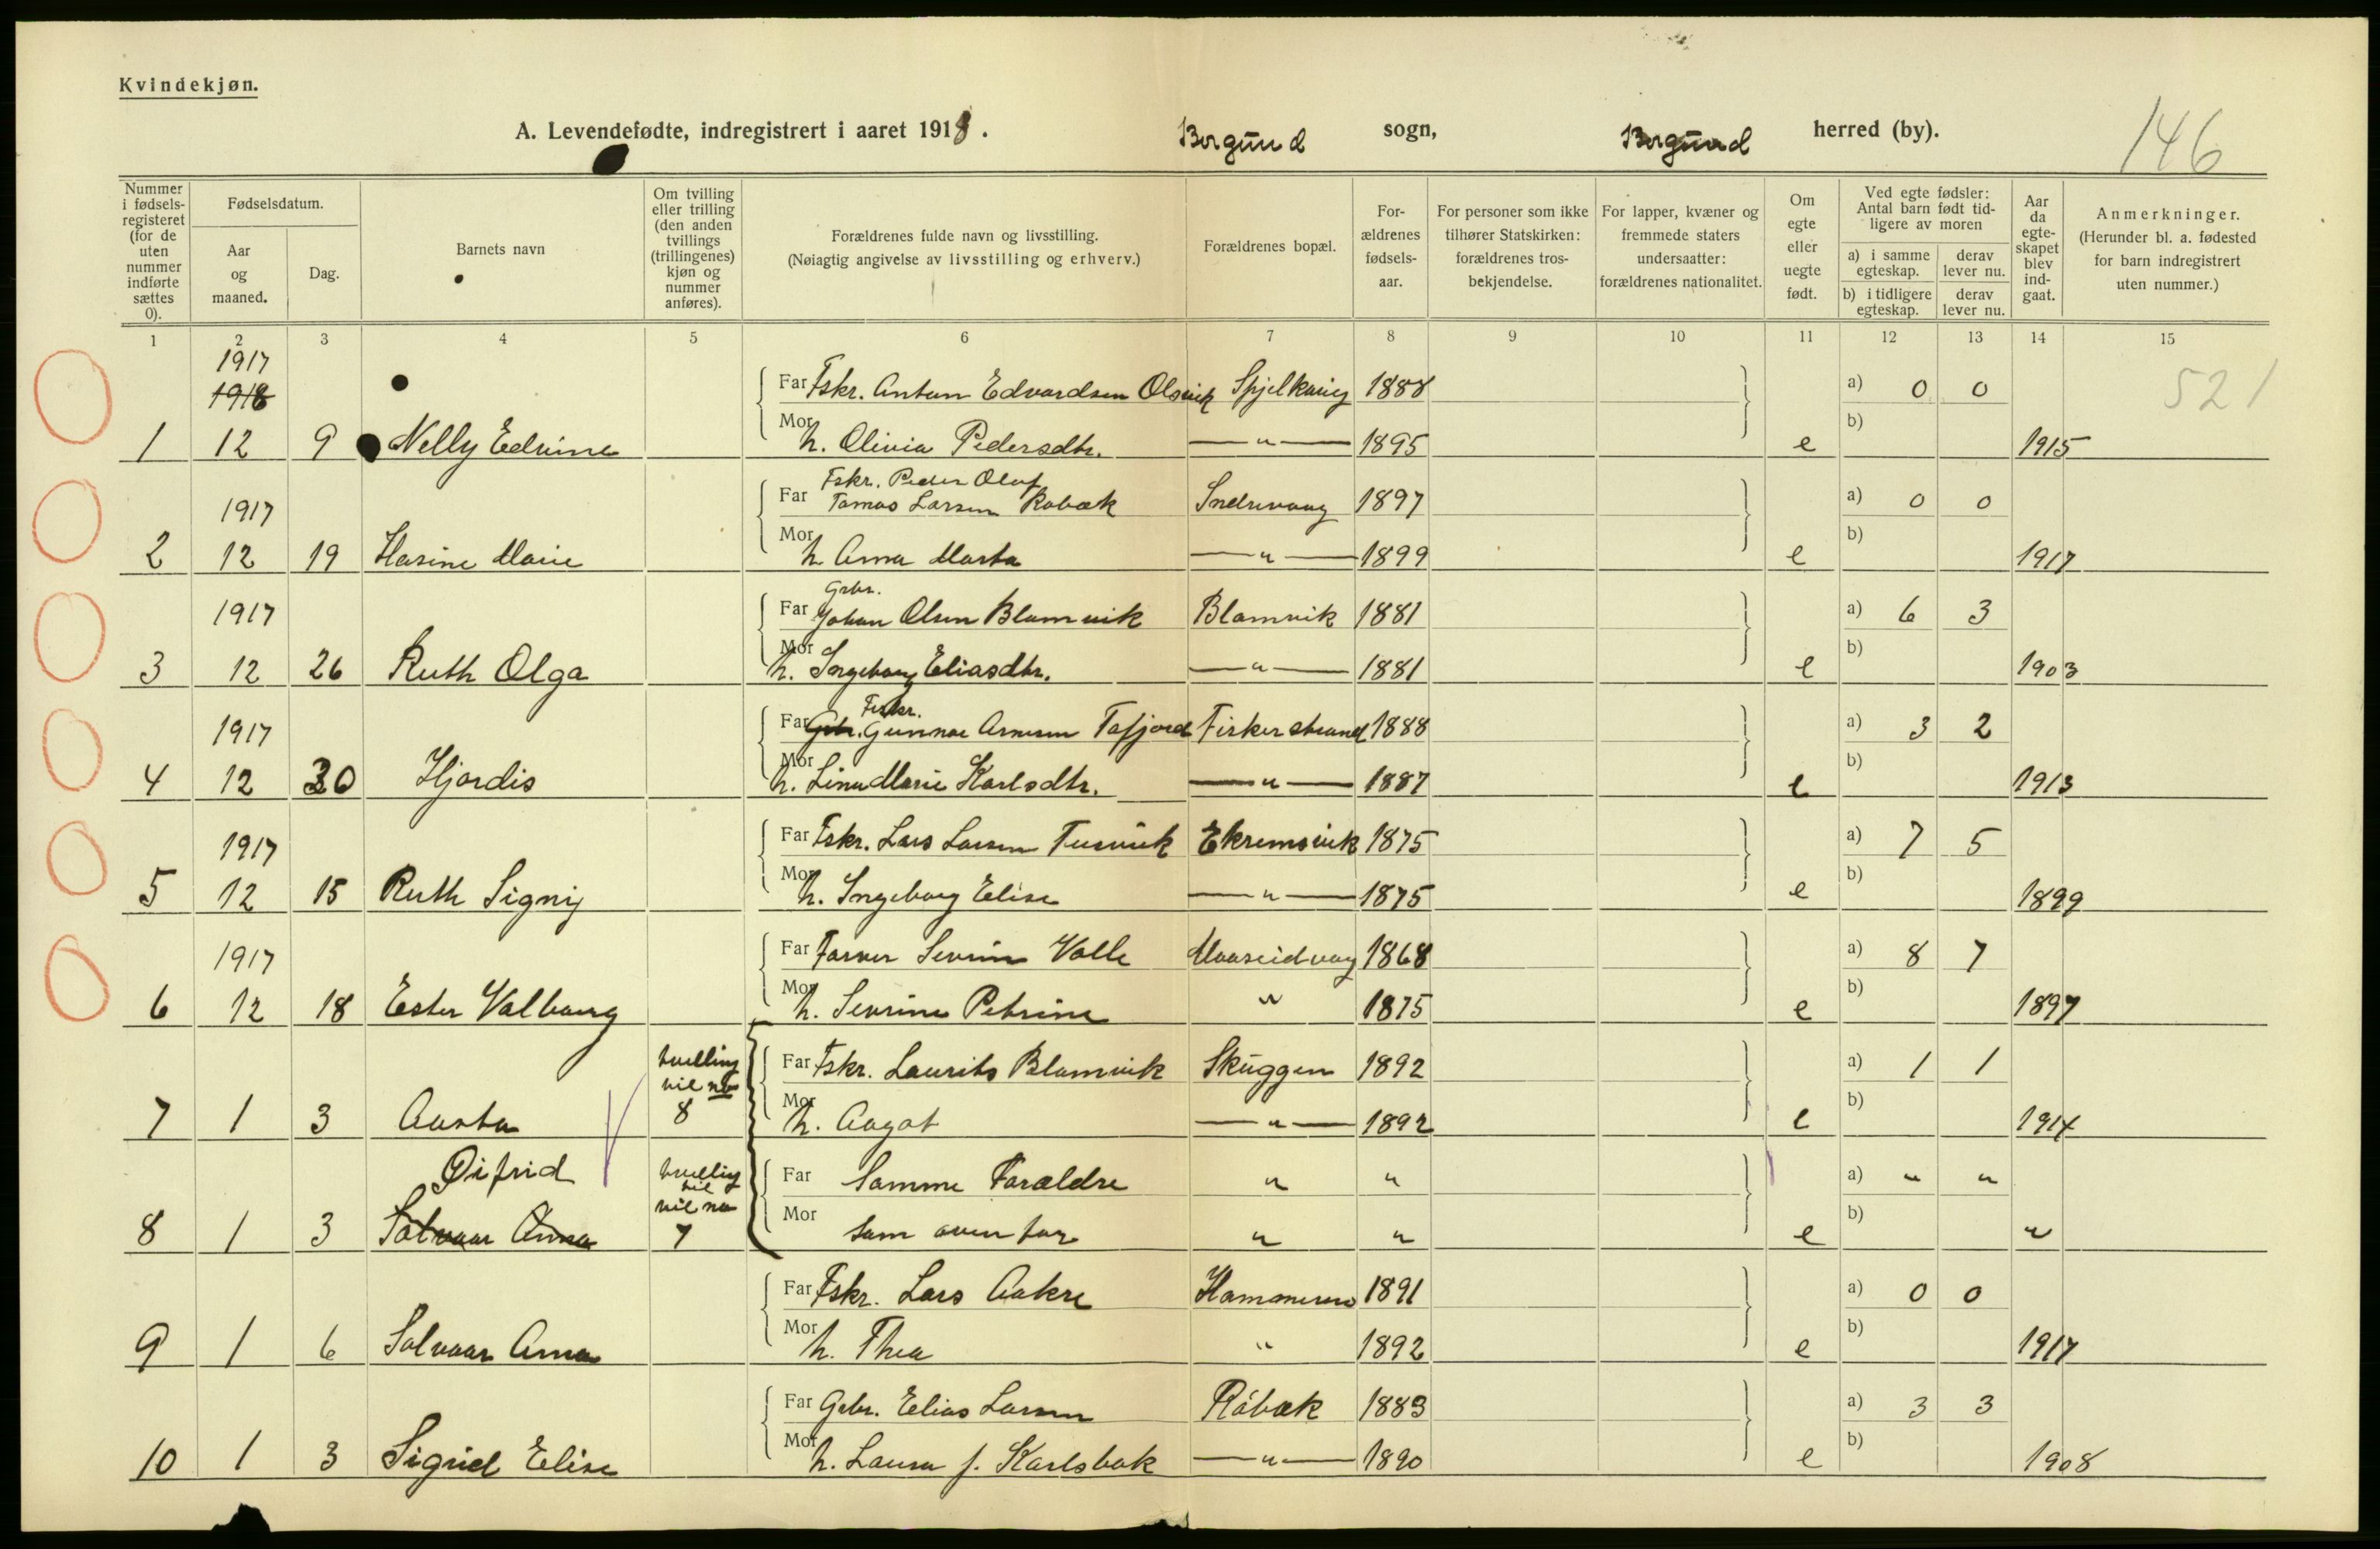 Kvindekjøn.
A. Levendefødte, indregistrert i aaret 1918.
Borgund sogn, Borgund herred (by).
146
Nummer i fødselsregisteret (for de uten nummer indførte sættes 0).
Fødselsdatum.
Aar og maaned.
Dag.
Barnets navn
Om tvilling eller trilling (den anden tvillings (trillingenes) kjøn og nummer anføres).
Forældrenes fulde navn og livsstilling.
(Nøiagtig angivelse av livsstilling og erhverv.)
Forældrenes bopæl.
Forældrenes fødselsaar.
For personer som ikke tilhører Statskirken: forældrenes trosbekjendelse.
For lapper, kvæner og fremmede staters undersaatter: forældrenes nationalitet.
Om egte eller uegte født.
Ved egte fødsler: Antal barn født tidligere av moren
a) i samme egteskap. derav lever nu.
b) i tidligere egteskap. derav lever nu.
Aar da egteskapet blev indgaat.
Anmerkninger.
(Herunder bl. a. fødested for barn indregistrert uten nummer.)
1 2 3 4 5 6 7 8 9 10 11 12 13 14 15
1917
1918 Far Fskr. Anton Edvardsen Olsvik Spjelkavig 1888 a) 0 0 521
1 12 9 Nelly Edvine Mor h. Olivia Pedersdtr. — " — 1895 e b) 1915
1917 Far Fskr. Peder Olaf
Tomas Larsen Robæk Indrevaag 1897 a) 0 0
2 12 19 Hasine Marie Mor h. Anna Marta — " — 1899 e b) 1917
1917 Far Grbr.
Johan Olsen Blomvik Blomvik 1881 a) 6 3
3 12 26 Ruth Olga Mor h. Ingeborg Eliasdtr. — " — 1881 e b) 1903
1917 Far Grbr. Fiskr. Gunnar Arnesen Tafjord Fiskerstrand 1888 a) 3 2
4 12 30 Hjordis Mor h. Lina Marie Karlsdtr. — " — 1887 e b) 1913
1917 Far Fskr. Lars Larsen Tusvik Ekremsvik 1875 a) 7 5
5 12 15 Ruth Signy Mor h. Ingeborg Elise — " — 1875 e b) 1899
1917 Far Farver Sevrin Valle Maaseidvaag 1868 a) 8 7
6 12 18 Ester Valborg Mor h. Sevrine Petrine " 1875 e b) 1897
tvelling Far Fskr. Laurits Blomvik Skuggen 1892 a) 1 1
til no
7 1 3 Aasta 8 Mor h. Aagot — " — 1892 e b) 1914
Øifrid tvelling Far Samme Forældre " " a) " "
til
til no
8 1 3 Solvaar Anna 7 Mor som ovenfor " " e b) "
Far Fskr. Lars Aakre 1891 a) 0 0
9 1 6 Solvaar Anna Mor h. Thea " 1892 e b) 1917
Far Grbr. Elias Larsen Råbæk 1883 a) 3 3
10 1 3 Sigrid Elise Mor h. Laura f. Karlsbak — " — 1890 e b) 1908